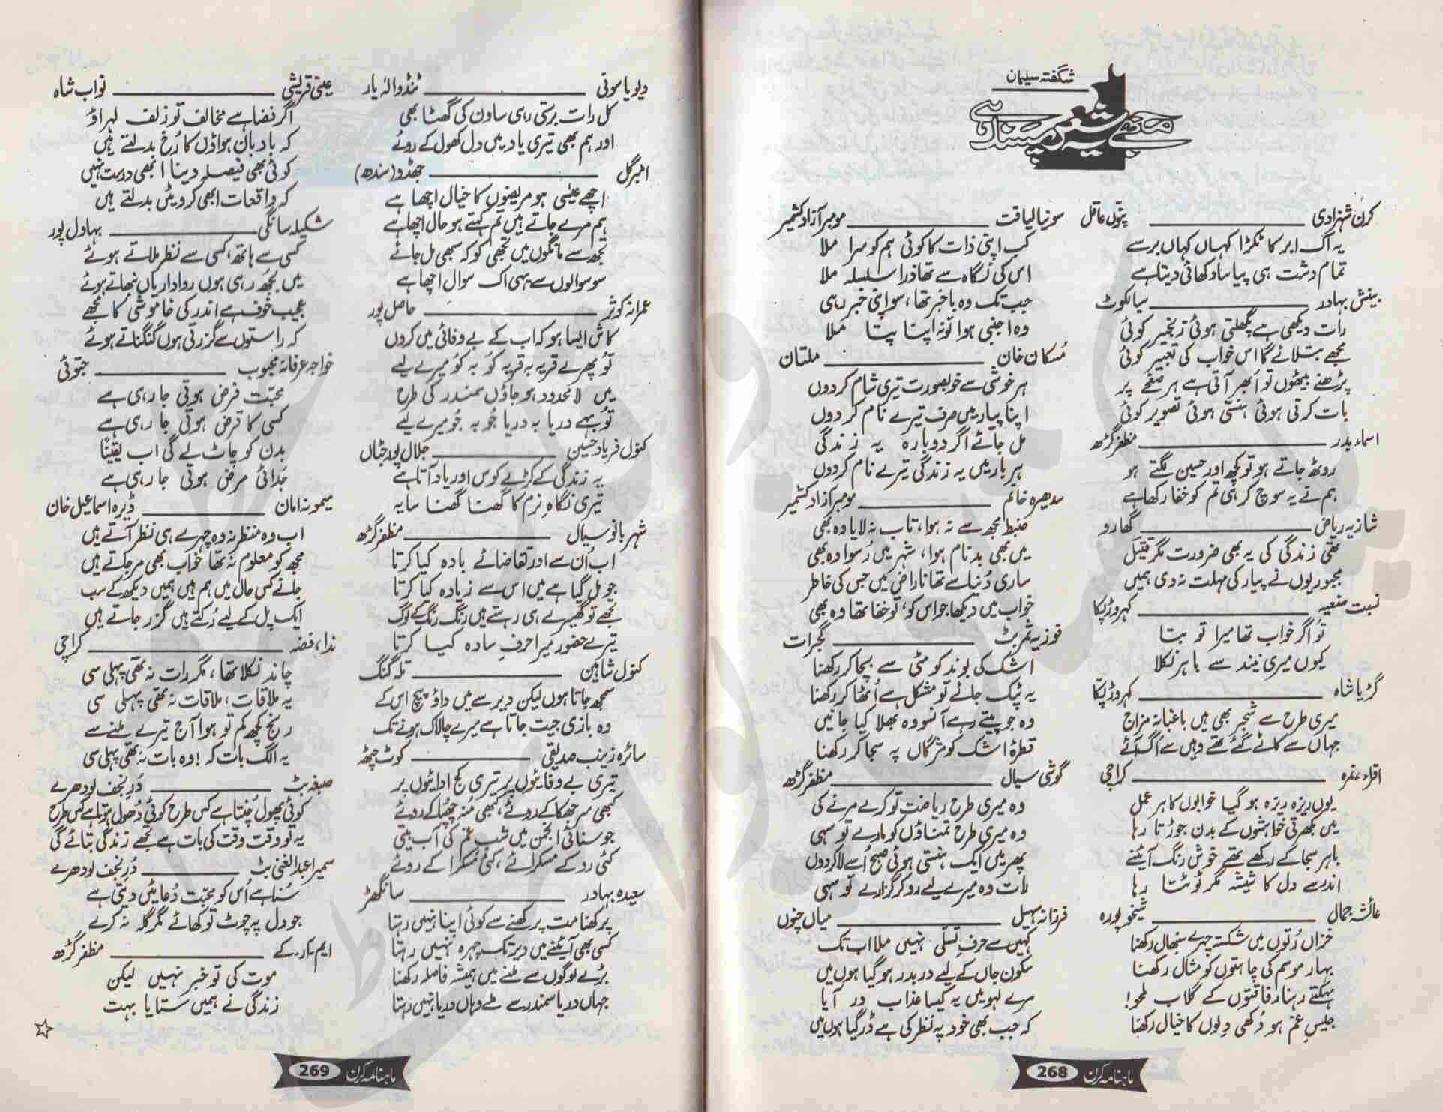 شگفتہ سلیمان
مجھے یہ شعر پسند ہے
کرن شہزادی ــــــ پتوں عاقل
یہ اک ابر کا ٹکڑا کہاں کہاں برسے
تمام دشت ہی پیاسا دکھائی دیتا ہے
بینش بہادر ــــــ سیالکوٹ
رات دیکھی ہے پگھلتی ہوئی زنجیر کوئی
مجھے بتلائے گا اس خواب کی تعبیر کوئی
پڑھنے بیٹھوں تو ابھر آتی ہے ہر صفحے پر
بات کرتی ہوئی ہنستی ہوئی تصویر کوئی
اسماء بدر ــــــ مظفرگڑھ
روٹھ جاتے ہو تو کچھ اور حسین لگتے ہو
ہم نے یہ سوچ کر ہی تم کو خفا رکھا ہے
شازیہ ریاض ــــــ گھارو
تھی زندگی کی یہ بھی ضرورت مگر قتیل
مجبوریوں نے پیار کی مہلت نہ دی ہمیں
نسبت صفیہ ــــــ کہروڑپکا
تو اگر خواب تھا میرا تو بتا
کیوں میری نیند سے باہر نکلا
گڑیا شاہ ــــــ کہروڑپکا
میری طرح سے شجر بھی ہیں باغیانہ مزاج
جہاں سے کاٹے گئے تھے وہیں سے اُگ آئے
اقراء عفرہ ــــــ کراچی
یوں ریزہ ریزہ ہو گیا خوابوں کا ہر عمل
میں بکھرتی خواہشوں کے بدن جوڑتا رہا
باہر سجا کے رکھے تھے خوش رنگ آئینے
اندر سے دل کا شیشہ مگر ٹوٹتا رہا
عائشہ جمال ــــــ شیخوپورہ
خزاں رُتوں میں شکستہ چہرے سنبھال رکھنا
بہار موسم کی چاہتوں کو مثال رکھنا
مہکتے رہنا رفاقتوں کے گلاب لمحو!
جلیسِ غم ہو دُکھی دِلوں کا خیال رکھنا
سونیا لیاقت ــــــ موہر آزاد کشمیر
کب اپنی ذات کا کوئی ہم کو سرا ملا
اس کی نگاہ سے تھا ذرا سلسلہ ملا
جب تک وہ باخبر تھا، سو اپنی خبر رہی
وہ اجنبی ہوا تو نہ اپنا پتا ملا
مُسکان خان ــــــ ملتان
ہر خوشی سے خوبصورت تیری شام کر دوں
اپنا پیار میں صرف تیرے نام کر دوں
مل جائے اگر دوبارہ یہ زندگی
ہر بار میں یہ زندگی تیرے نام کر دوں
سدھرہ خانم ــــــ موہر آزاد کشمیر
ضبط مجھ سے نہ ہوا، تاب نہ لایا وہ بھی
میں بھی بدنام ہوا، شہر میں رسوا وہ بھی
ساری دُنیا سے تھا ناراض میں جس کی خاطر
خواب میں دیکھا جو اس کو، تو خفا تھا وہ بھی
فوزیہ ثمر بٹ ــــــ گجرات
اشک کی بوند کو مٹی سے بچا کر رکھنا
یہ ٹپک جائے تو مشکل ہے اُٹھا کر رکھنا
وہ جو پیتے رہے آنسو وہ بھلا کیا جانیں
قطرۂ اشک کو مژگاں پہ سجا کر رکھنا
گوشی سیال ــــــ مظفرگڑھ
وہ میری طرح ریاضت تو کرے مرنے کی
وہ میری طرح تمناؤں کو مارے تو سہی
پھر میں ایک ہنستی ہوئی صبح اُسے لا کر دوں
رات وہ میرے لیے رو کر گزارے تو سہی
فرزانہ سہیل ــــــ میاں چنوں
کہیں سے حرفِ تسلی نہیں ملا اب تک
سکون جاں کے لیے در بدر ہو گیا ہوں میں
مرے لہو میں یہ کیسا عذاب در آیا
کہ جب بھی خود پہ نظر کی ہے ڈر گیا ہوں میں
ماہنامہ کرن 268
دیویا موتی ــــــ ٹنڈو الہ یار
کل رات برستی رہی ساون کی گھٹا بھی
اور ہم بھی تیری یاد میں دل کھول کے روئے
امبر گل ــــــ جھڈو (سندھ)
اچھے عیسیٰ ہو مریضوں کا خیال اچھا ہے
ہم مرے جاتے ہیں تم کہتے ہو حال اچھا ہے
تجھ سے مانگوں میں تجھی کو کہ سبھی مل جائے
سو سوالوں سے یہی اک سوال اچھا ہے
عمرانہ کوثر ــــــ حاصل پور
کاش ایسا ہو کہ اب کے بے وفائی میں کروں
تو پھرے قریہ بہ قریہ کُو بہ کُو میرے لیے
میں لامحدود ہو جاؤں سمندر کی طرح
تو بہے دریا بہ دریا جُو بہ جُو میرے لیے
کنول فریاد حسین ــــــ جلال پور جٹاں
یہ زندگی کے کڑے کوس اور یاد آتا ہے
تیری نگاہِ نرم کا گھنا گھنا سایہ
شہر بانو سیال ــــــ مظفرگڑھ
اب اُن سے اور تقاضائے بادہ کیا کرتا
جو مل گیا ہے میں اس سے زیادہ کیا کرتا
تجھے تو گھیرے ہی رہتے ہیں رنگ رنگ کے لوگ
تیرے حضور میرا حرفِ سادہ کیا کرتا
کنول شاہین ــــــ تلہ گنگ
سمجھ جاتا ہوں لیکن دیر سے میں داؤ پیچ اس کے
وہ بازی جیت جاتا ہے میرے چالاک ہونے تک
سائرہ زینب صدیقی ــــــ کوٹ چٹھہ
تیری بے وفائیوں پر تیری کج ادائیوں پر
کبھی سر جھکا کے روئے، کبھی منہ چھپا کے روئے
جو سنائی انجمن میں شبِ غم کی آپ بیتی
کئی رو کے مسکرائے، کئی مسکرا کے روئے
سعیدہ بہادر ــــــ سانگھڑ
پرکھنا مت پرکھنے سے کوئی اپنا نہیں رہتا
کسی بھی آئینے میں دیر تک چہرہ نہیں رہتا
بڑے لوگوں سے ملنے میں ہمیشہ فاصلہ رکھنا
جہاں دریا سمندر سے ملے وہاں دریا نہیں رہتا
عینی قریشی ــــــ نواب شاہ
اگر فضا ہے مخالف تو زلف لہراؤ
کہ بادبان ہواؤں کا رُخ بدلتے ہیں
کوئی بھی فیصلہ دینا ابھی درست نہیں
کہ واقعات ابھی کروٹیں بدلتے ہیں
شکیلہ سانگی ــــــ بہاول پور
کسی سے ہاتھ، کسی سے نظر ملاتے ہوئے
میں بجھ رہی ہوں رواداریاں نبھاتے ہوئے
عجیب خوف ہے اندر کی خاموشی کا مجھے
کہ راستوں سے گزرتی ہوں گنگناتے ہوئے
خواجہ عرفانہ محبوب ــــــ جتوئی
محبت فرض ہوتی جا رہی ہے
کسی کا قرض ہوتی جا رہی ہے
بدن کو چاٹ لے گی اب یقیناً
جدائی مرض ہوتی جا رہی ہے
میمونہ امان ــــــ ڈیرہ اسماعیل خان
اب وہ منظر نہ وہ چہرے ہی نظر آتے ہیں
مجھ کو معلوم نہ تھا خواب بھی مر جاتے ہیں
جانے کس حال میں ہم ہیں ہمیں دیکھ کے سب
ایک پل کے لیے رُکتے ہیں گزر جاتے ہیں
ندا، فضہ ــــــ کراچی
چاند نکلا تھا، مگر رات نہ تھی پہلی سی
یہ ملاقات، ملاقات نہ تھی پہلی سی
رنج کچھ کم تو ہوا آج تیرے ملنے سے
یہ الگ بات کہ! وہ بات نہ تھی پہلی سی
صغریٰ بٹ ــــــ ڈر نجف لودھرے
کوئی پھول چنتا ہے کس طرح کوئی دُھول ہوتا ہے کس طرح
یہ تو وقت وقت کی بات ہے تجھے زندگی بتائے گی
سمیرا عبدالغنی بٹ ــــــ ڈر نجف لودھرے
سُنا ہے اُس کو محبت دُعائیں دیتی ہے
جو دل پہ چوٹ تو کھائے مگر گلہ نہ کرے
ایم نار کے ــــــ مظفرگڑھ
موت کی تو خبر نہیں لیکن
زندگی نے ہمیں ستایا بہت
☆
ماہنامہ کرن 269